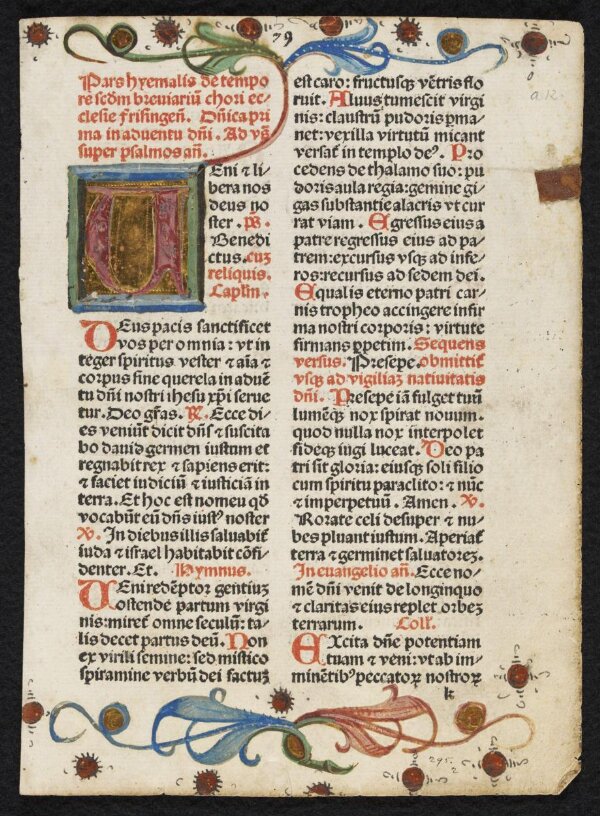 79
Pars hyemalis de tempo
re scd̃m breuiariũ chori ec⸗
clesie frisingeñ. Dñica pri
ma in aduentu dñi. Ad vẽs
super psalmos añ.
VEni ⁊ li⸗
bera nos
deus no
ster. p̃s.
Benedi
ctus. cuʒ
reliquis.
Caplm̃.
DEus pacis sanctificet
vos per omnia: vt in
teger spiritus vester ⁊ aĩa ⁊
corpus sine querela in aduẽ
tu dñi nostri ihesu xp̃i serue
tur. Deo gr̃as. ℟. Ecce di⸗
es veniũt dicit dñs ⁊ suscita
bo dauid germen iustum et
regnabit rex ⁊ sapiens erit:
⁊ faciet iudiciũ ⁊ iusticiã in
terra. Et hoc est nomeu qd̃
vocabũt eũ dñs iustꝰ noster
℣. In diebus illis saluabiť
iuda ⁊ israel habitabit cõfi⸗
denter. Et. Hymnus.
VEni redẽptor gentiuʒ
ostende partum virgi
nis: mireť omne seculũ: ta⸗
lis decet partus deũ. Non
ex virili semine: sed mistico
spiramine verbũ dei factuʒ
est caro: fructusqꝫ vẽtris flo
ruit. Aluus tumescit virgi
nis: claustrũ pudoris ꝑma⸗
net: vexilla virtutũ micant
versať in templo deꝰ. Pro
cedens de thalamo suo: pu
doris aula regia: gemine gi
gas substantie alacris vt cur
rat viam. Egressus eius a
patre regressus eius ad pa⸗
trem: excursus vsqꝫ ad infe⸗
ros: recursus ad sedem dei.
Equalis eterno patri car⸗
nis tropheo accingere infir
ma nostri corporis: virtute
firmans ꝑpetim. Sequens
versus. Presepe. obmittiť
vsqꝫ ad vigiliaʒ natiuitatis
dñi. Presepe iã fulget tuũ
lumẽqꝫ nox spirat nouum.
quod nulla nox interpolet
fideqꝫ iugi luceat. Deo pa
tri sit gloria: eiusqꝫ soli filio
cum spiritu paraclito: ⁊ nũc
⁊ imperpetuũ. Amen. ℣.
Rorate celi desuper ⁊ nu⸗
bes pluant iustum. Aperiať
terra ⁊ germinet saluatoreʒ.
In euangelio añ. Ecce no⸗
mẽ dñi venit de longinquo
⁊ claritas eius replet orbeʒ
terrarum. Coll̃.
EXcita dñe potentiam
tuam ⁊ veni: vt ab im⸗
minẽtibꝰ peccatoꝝ nostroꝝ
k
295.
2